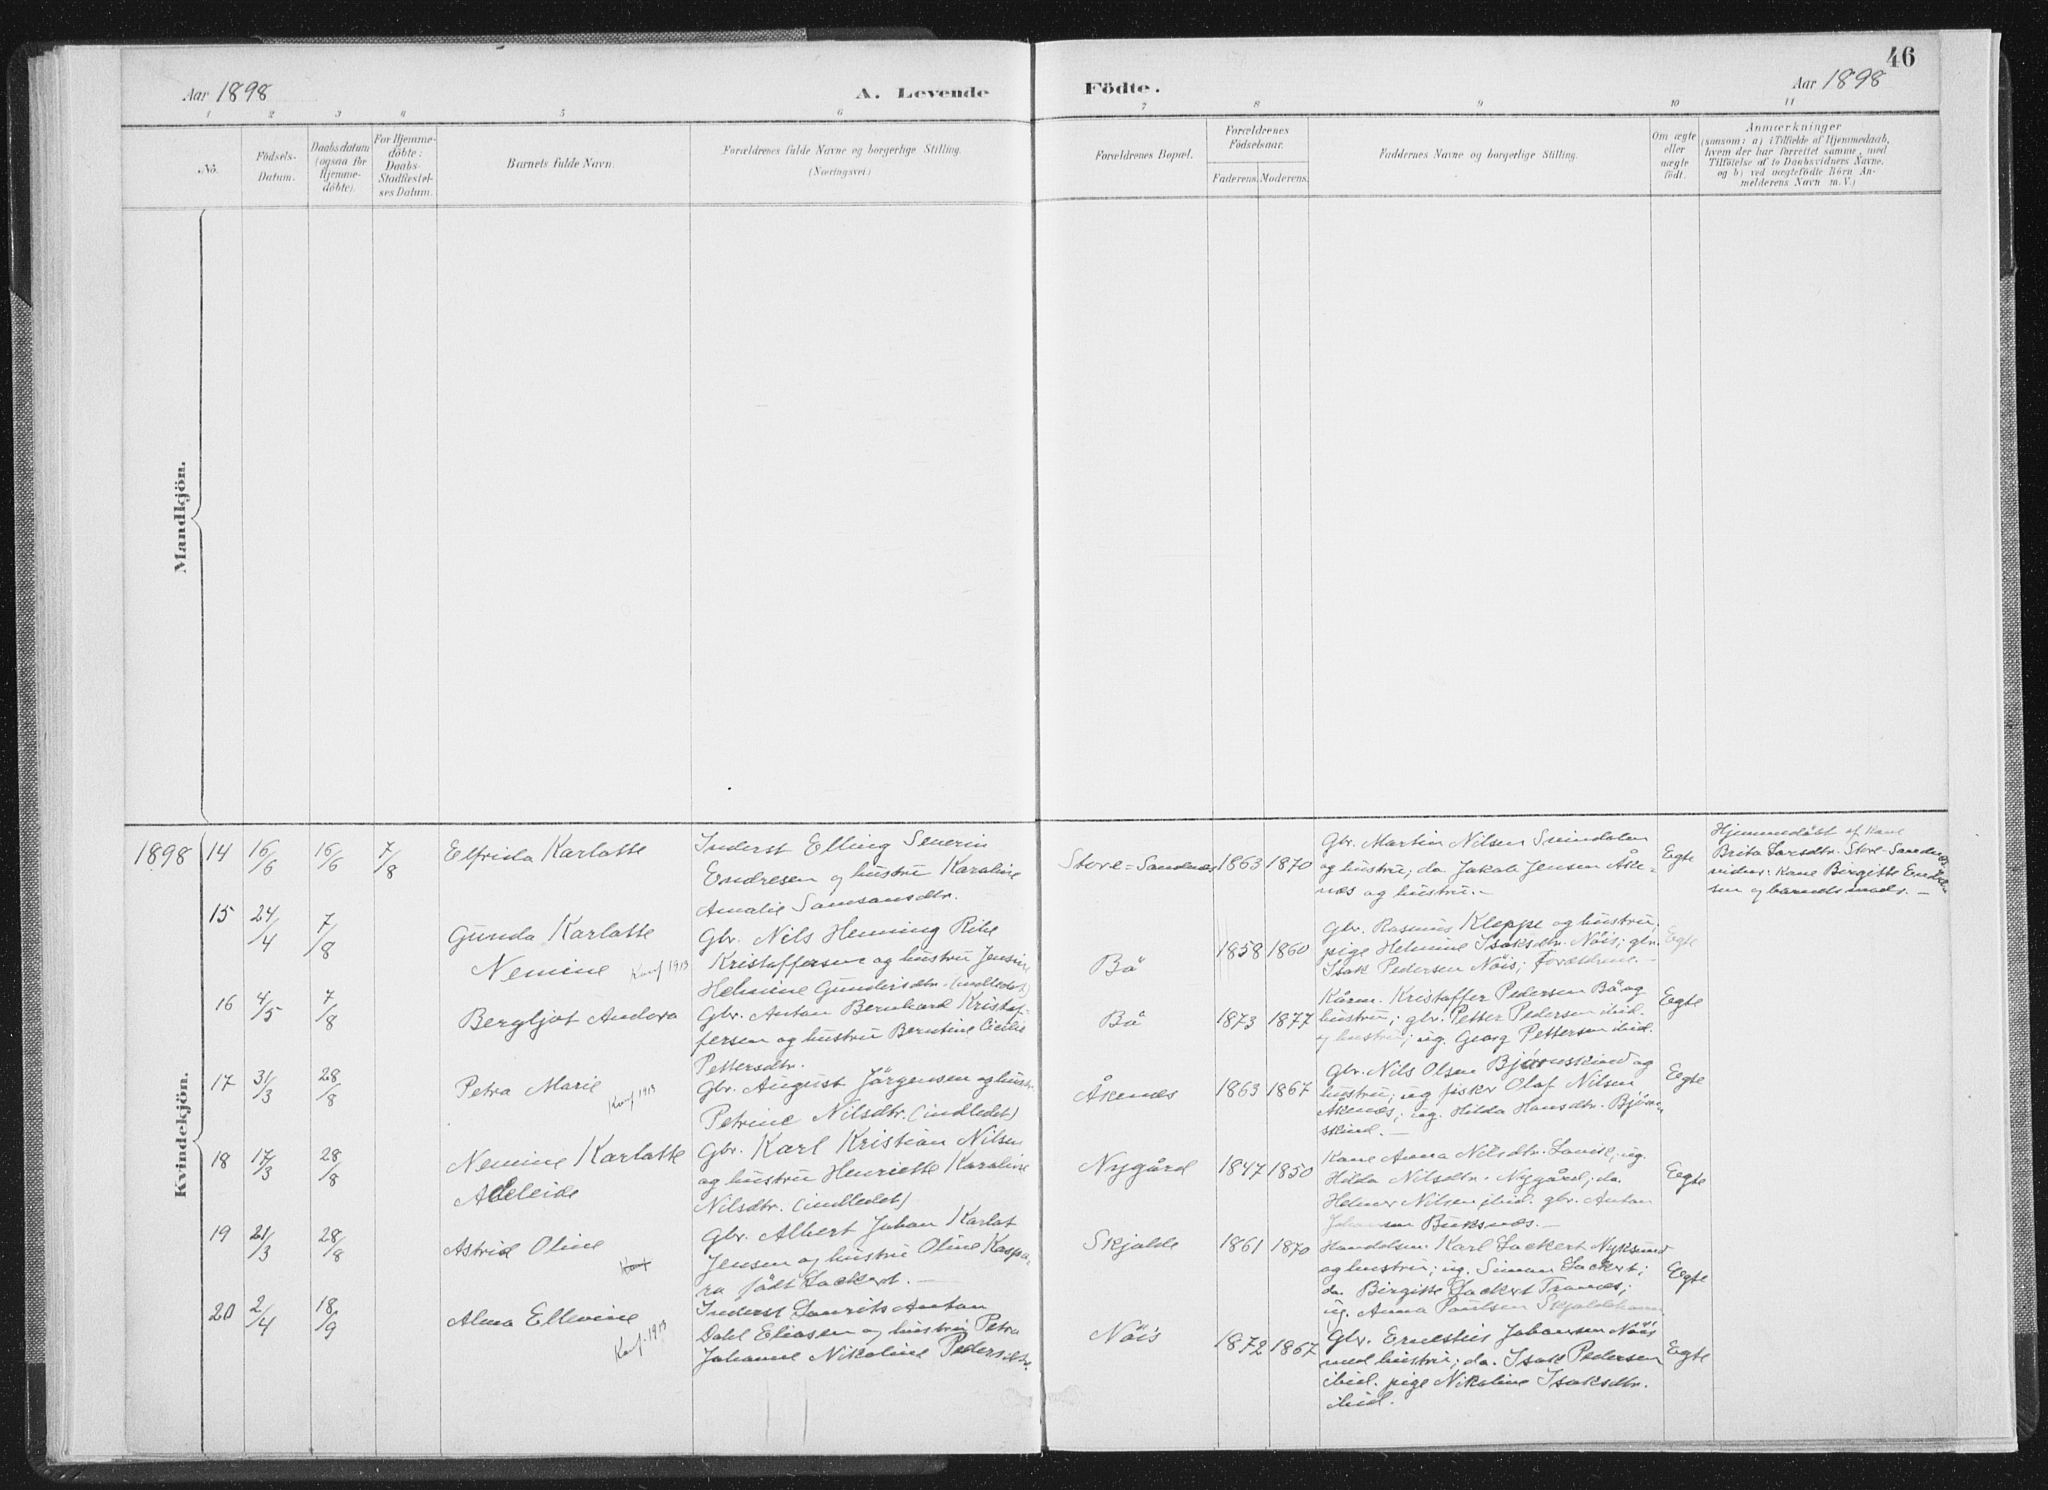 46
Aar 1898
A. Levende
Födte.
Aar 1898
1 2 3 4 5 6 7 8 9 10 11
No.
Födsels-
Datum.
Daabsdatum
(ogsaa for
Hjemme-
döbte).
For Hjemme-
döbte:
Daabs-
Stadfestel-
ses Datum.
Barnets fulde Navn.
Forældrenes fulde Navne og borgerlige Stilling.
(Næringsvei.)
Forældrenes Bopæl.
Forældrenes
Födselsaar.
Faderens. Moderens.
Faddernes Navne og borgerlige Stilling.
Om ægte
eller
uægte
födt.
Anmærkninger
(saasom: a) i Tilfælde af Hjemmedaab,
hvem der har forrettet samme, med
Tilföielse af to Daabsvidners Navne,
og b) ved uægtefödte Börn An-
melderens Navn m. V.)
Mandkjön.
Kvindekjön.
1898 14 16/6 16/6 7/8
Elfrida Karlotte
Inderst Elling Severin
Endresen og hustru Karoline
Amalie Samsonsdtr.
Store=Sandnes 1863 1870
Gbr. Martin Nilsen Svindalen
og hustru; do Jakob Jensen Åke-
næs og hustru.-
Egte
Hjemmedöbt af Kone
Brita Larsdtr. Store-Sandnes
vidner: Kone Birgitte Endre-
sen og barnets moder. -
15 24/4 7/8
Gunda Karlotte
Nemine Konf 1913
Gbr. Nils Henning Rike
Kristoffersen og hustru Jensine
Helmine Gundersdtr. (indledet)
Bö 1858 1860
Gbr. Rasmus Kleppe og hustru;
pige Helmine Isaksdtr. Nöis; gbr.
Isak Pedersen Nöis; forældrene.-
Egte
16 4/5 7/8
Bergljot Andora
Gbr. Anton Bernhard Kristof-
fersen og hustru Berntine Cicilie
Pettersdtr.
Bö 1873 1877
Kårm. Kristoffer Pedersen Bö og
hustru; gbr. Petter Pedersen ibid.
og hustru; ug. Georg Pettersen ibid.
Egte
17 31/3 28/8
Petra Marie Konf 1913
Gbr. August Jörgensen og hustr.
Petrine Nilsdtr. (indledet)
Åkenæs 1863 1867
Gbr. Nils Olsen Bjørnskind og
hustru; ug fisker Olaf Nilsen
Åkenæs; ug. Hilda Hansdtr. Bjørn-
skind. -
Egte
18 17/3 28/8
Nemine Karlotte
Adeleide
Gbr. Karl Kristian Nilsen
og hustru Henriette Karoline
Nilsdtr. (indledet)
Nygård 1847 1850
Kone Anna Nilsdtr. ug.
Hilda Nilsdtr. Nygård; do.
Helmer Nilsen ibid. gbr. Anton
Johansen Buksnæs. -
Egte
19 21/3 28/8
Astrid Oline
Konf
Gbr. Albert Johan Karlot
Jensen og hustru Oline Kaspa-
ra födt Lockert. -
Skjolde 1861 1870
Handelsm. Karl Lockert Nyksund
og hustru; ug. Simon Lockert;
do. Birgitte Lockert Tranæs;
ug. Anna Paulsen Skjoldehavn
Egte
20 2/4 18/9
Alma Ellevine
Konf. 1913
Inderst Laurits Anton
Dahl Eliasen og hustru Petra
Johanne Nikoline Pedersdtr.
Nöis 1872 1867
Gbr. Ernestus Johansen Nöis
med hustru; do. Isak Pedersen
ibid. pige Nikoline Isaksdtr.
ibid.
Egte